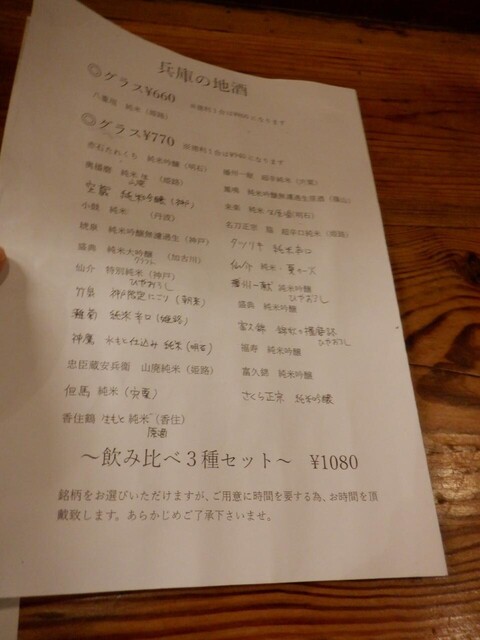 兵庫の地酒
◎グラス¥660
八重垣 純米(姫路)
◎グラス¥770
純米吟醸(明石)
奥播磨 純米 (姫路)
山廃
空蔵 純米吟醸(神戸)
小鼓 純米 (丹波)
純米吟醸無濾過生(神戸)
盛典 純米大吟醸 (加古川)
仙介 特別純米(神戸)
ひやおろし
竹泉 神戸限定にごり(朝来)
灘菊 純米辛口(姫路)
神鷹 水もと仕込み 純米(明石)
忠臣蔵安兵衛 山廃純米(姫路)
但馬 純米(宍粟)
香住鶴 生もと純米(香住)
原酒
播州一献 超辛純米(宍粟)
鳳鳴 純米吟醸無濾過生原酒(篠山)
来楽 純米
名刀正宗 龍 超辛口純米(姫路)
タツリキ 純米辛口
仙介 純米
播州一献 純米吟醸
ひやおろし
盛典 純米吟醸
富久錦 純米 播磨路
ひやおろし
福寿 純米吟醸
富久錦 純米吟醸
さくら正宗 純米吟醸
～飲み比べ3種セット～ ¥1080
銘柄をお選びいただけますが、ご用意に時間を要する為、お時間を頂
戴致します。あらかじめご了承下さいませ。